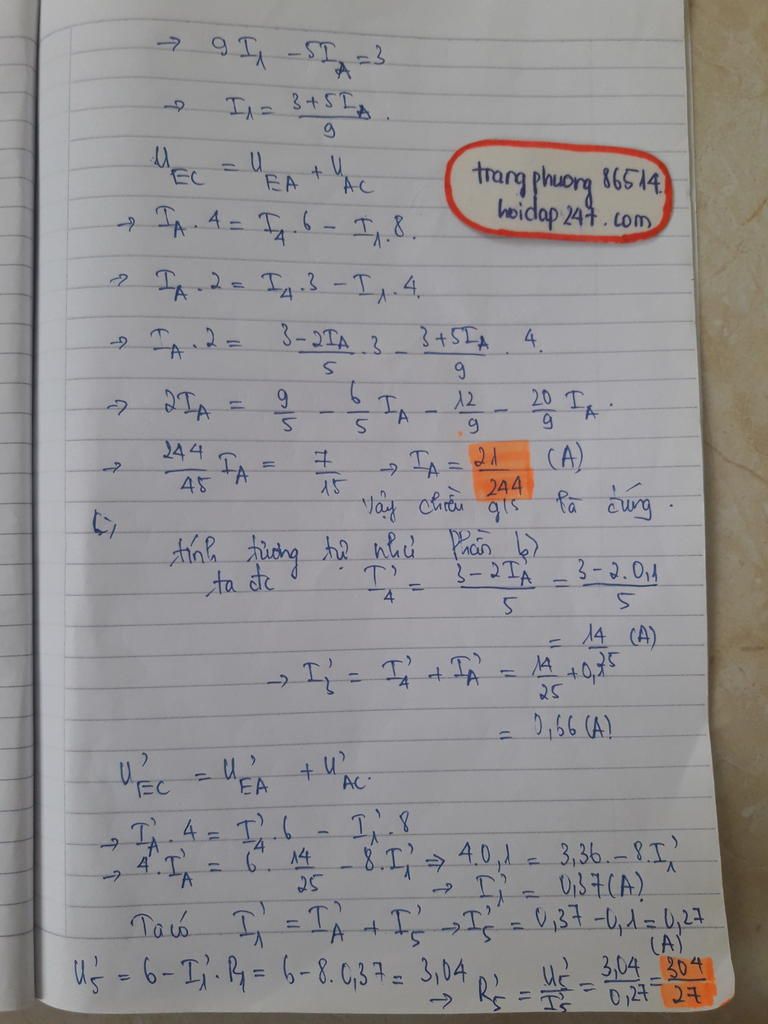 → 9I₁ - 5I_A = 3
→ I₁ = (3+5I_A)/9.
U_EC = U_EA + U_AC
trangphuong 86514.
hoidap247.com
→ I_A . 4 = I₄ . 6 - I₁ . 8.
→ I_A . 2 = I₄ . 3 - I₁ . 4.
→ I_A . 2 = (3-2I_A)/5 . 3 - (3+5I_A)/9 . 4.
→ 2I_A = 9/5 - 6/5 I_A - 12/9 - 20/9 I_A.
→ 244/45 I_A = 7/15 → I_A = 21/244 (A)
Vậy chiều g/s là đúng.
c,
tính tương tự như phần b)
ta đc I₄' = (3-2I_A')/5 = (3-2.0,1)/5
= 14/25 (A)
→ I₃' = I₄' + I_A' = 14/25 + 0,1
= 0,66 (A)
U'_EC = U'_EA + U'_AC.
→ I_A' . 4 = I₄' . 6 - I₁' . 8
→ 4 . I_A' = 6 . 14/25 - 8.I₁' ⇒ 4.0,1 = 3,36 - 8.I₁'
→ I₁' = 0,37(A)
Ta có I₁' = I_A' + I₅' → I₅' = 0,37 - 0,1 = 0,27
(A)
U₅' = 6 - I₁' . R₁ = 6 - 8.0,37 = 3,04
→ R₅' = U₅'/I₅' = 3,04/0,27 = 304/27